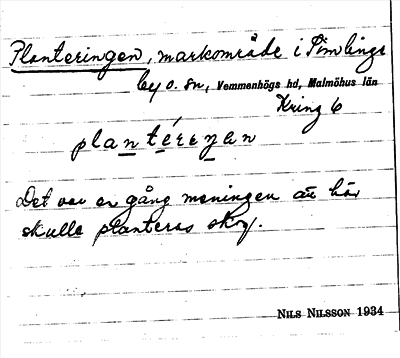 Planteringen, markområde i Simlinge
by o. sn, Vemmenhögs hd, Malmöhus län
Kring 6
planterezen
Det var en gång meningen att här
skulle planteras skog.
NILS NILSSON 1934